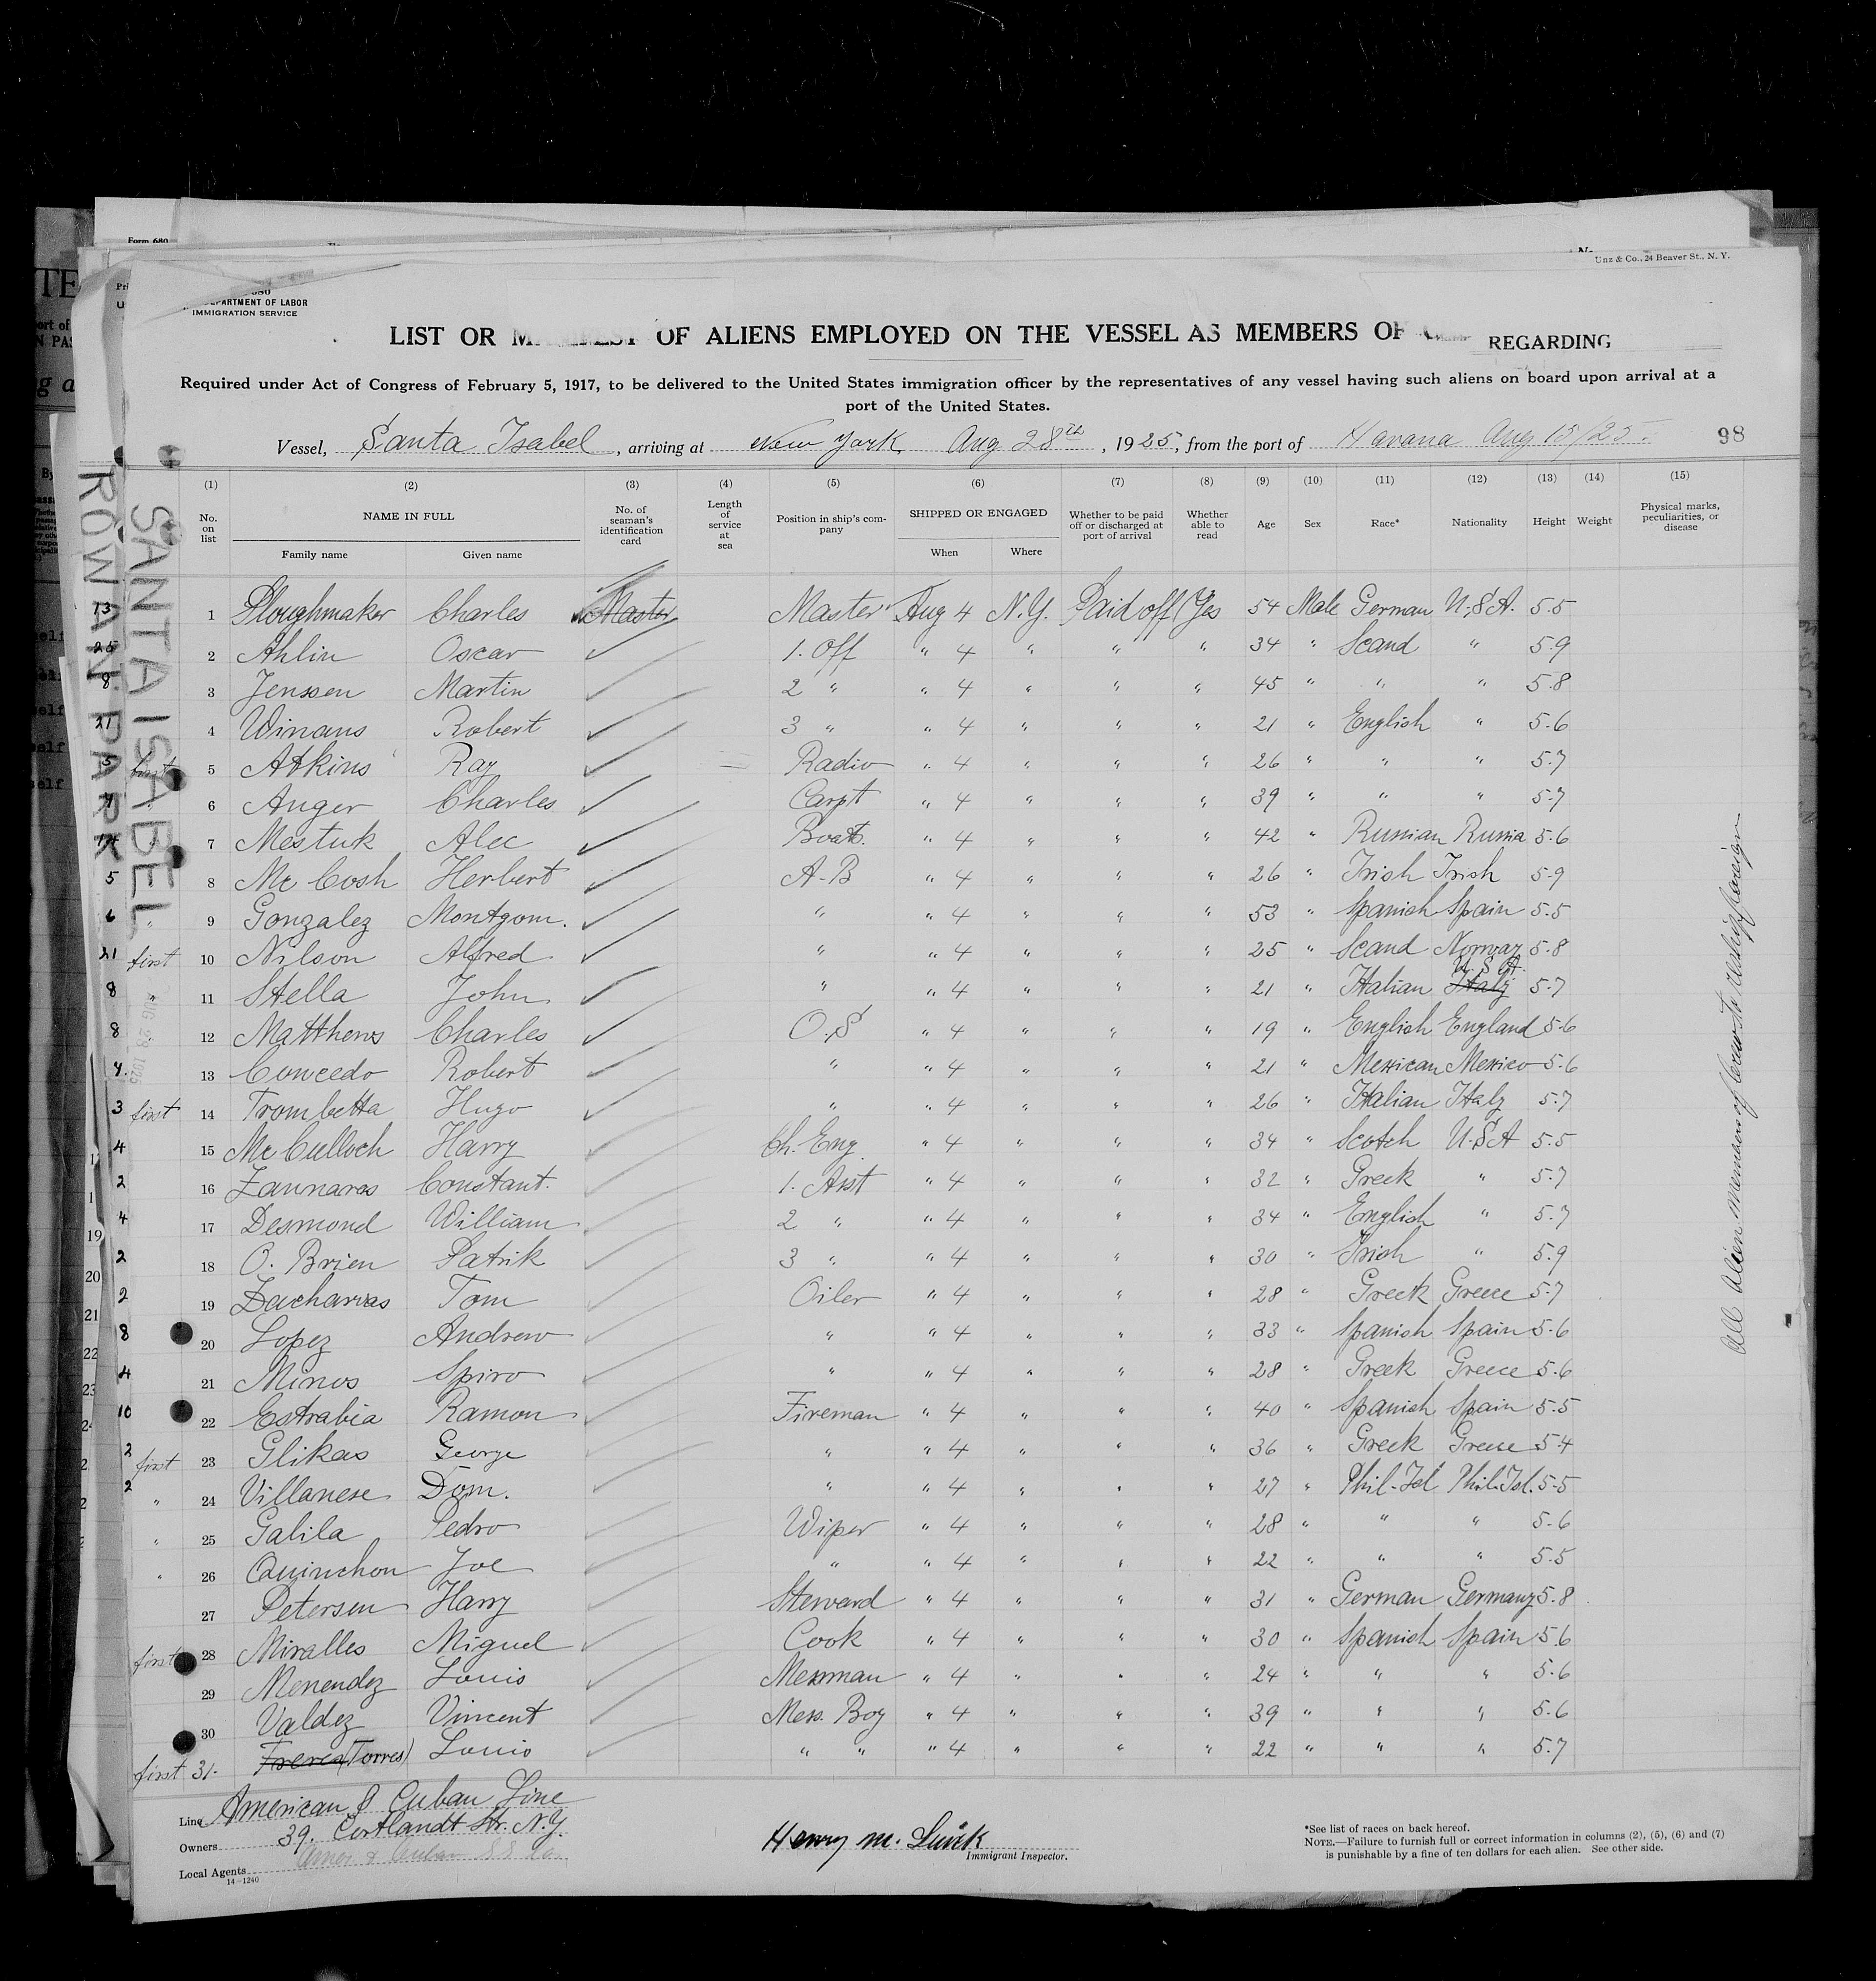 Form 680
Unz & Co., 24 Beaver St., N. Y.
DEPARTMENT OF LABOR
IMMIGRATION SERVICE
LIST OR MANIFEST OF ALIENS EMPLOYED ON THE VESSEL AS MEMBERS OF REGARDING
Required under Act of Congress of February 5, 1917, to be delivered to the United States immigration officer by the representatives of any vessel having such aliens on board upon arrival at a
port of the United States.
Vessel, Santa Isabel, arriving at New York Aug 28th, 1925, from the port of Havana Aug 15/25. 98
SANTA ISABEL
ROWAN PARK
(1) (2) (3) (4) (5) (6) (7) (8) (9) (10) (11) (12) (13) (14) (15)
No. on list NAME IN FULL Family name Given name No. of seaman's identification card Length of service at sea Position in ship's company SHIPPED OR ENGAGED When Where Whether to be paid off or discharged at port of arrival Whether able to read Age Sex Race* Nationality Height Weight Physical marks, peculiarities, or disease
13 1 Ploughmaker Charles Master Master Aug 4 N.Y. Paid off Yes 54 Male German U.S.A. 5.5
25 2 Ahlin Oscar 1. Off " 4 " " " 34 " Scand " 5.9
8 3 Jenssen Martin 2 " " 4 " " " 45 " " " 5.8
21 4 Winans Robert 3 " " 4 " " " 21 " English " 5.6
5 first 5 Atkins Ray Radio " 4 " " " 26 " " " 5.7
6 Auger Charles Carpt " 4 " " " 39 " " " 5.7
7 Mestuk Alec Boats. " 4 " " " 42 " Russian Russia 5.6
5 8 Mc Cosh Herbert A.B " 4 " " " 26 " Irish Irish 5.9
6 " 9 Gonzalez Montgom. " " 4 " " " 53 " Spanish Spain 5.5
21 first 10 Nilson Alfred " " 4 " " " 25 " Scand Norway 5.8
8 " 11 Stella John " " 4 " " " 21 " Italian Italy U S A. 5.7
8 12 Matthews Charles O.S " 4 " " " 19 " English England 5.6
13 Concedo Robert " " 4 " " " 21 " Mexican Mexico 5.6
3 first 14 Trombetta Hugo " " 4 " " " 26 " Italian Italy 5.7
4 15 Mc Culloch Harry Ch. Eng. " 4 " " " 34 " Scotch U.S.A 5.5
2 16 Zannaras Constant. 1. Asst " 4 " " " 32 " Greek " 5.7
4 17 Desmond William 2 " " 4 " " " 34 " English " 5.7
2 18 O. Brien Patrik 3 " " 4 " " " 30 " Irish " 5.9
2 19 Zacharias Tom Oiler " 4 " " " 28 " Greek Greece 5.7
8 20 Lopez Andrew " " 4 " " " 33 " Spanish Spain 5.6
4 21 Minos Spiro " " 4 " " " 28 " Greek Greece 5.6
10 22 Estrabia Ramon Fireman " 4 " " " 40 " Spanish Spain 5.5
2 first 23 Glikas George " " 4 " " " 36 " Greek Greece 5.4
2 " 24 Villanese Dom. " " 4 " " " 27 " Phil. Isl Phil. Isl. 5.5
" 25 Galila Pedro Wiper " 4 " " " 28 " " " 5.6
" 26 Quinchon Joe " " 4 " " " 22 " " " 5.5
27 Petersen Harry Steward " 4 " " " 31 " German Germany 5.8
first 28 Miralles Miguel Cook " 4 " " " 30 " Spanish Spain 5.6
29 Menendez Louis Messman " 4 " " " 24 " " " 5.6
30 Valdez Vincent Mess. Boy " 4 " " " 39 " " " 5.6
first 31. (Torres) Louis " " " 4 " " " 22 " " " 5.7
All Alien members of Crew to reship foreign
Line American & Cuban Line
Owners 39. Cortlandt Str. N.Y.
Local Agents Amer. & Cuban S.S. Co.
14-1240
Henry M.
Immigrant Inspector.
*See list of races on back hereof.
NOTE.—Failure to furnish full or correct information in columns (2), (5), (6) and (7)
is punishable by a fine of ten dollars for each alien. See other side.